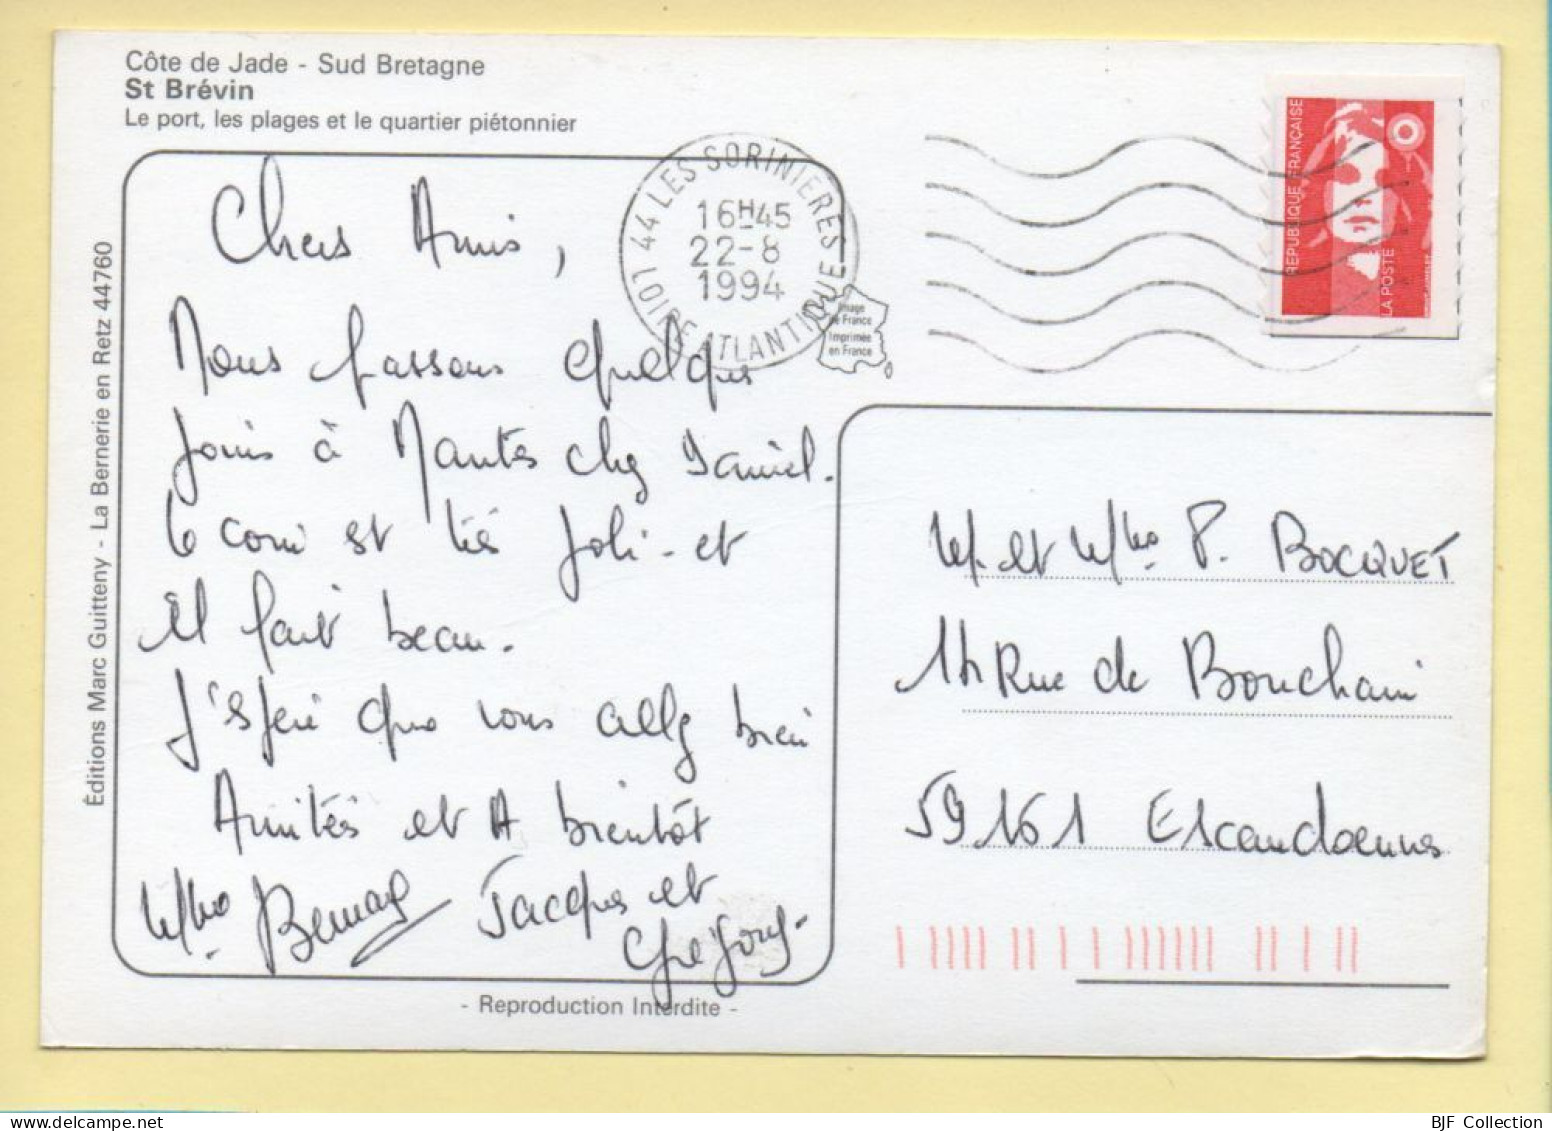 Côte de Jade - Sud Bretagne
St Brévin
Le port, les plages et le quartier piétonnier
Éditions Marc Guitteny - La Bernerie en Retz 44760
Chers Amis,
Nous passons quelques
jours à Nantes chez Daniel.
le coin est très joli - et
il fait beau.
J'espère que vous allez bien
Amitiés et A bientôt
Jacques et
Grégory -
- Reproduction Interdite -
44 LES SORINIERES
16H45
22-8
1994
LOIRE ATLANTIQUE
Image
de France
Imprimée
en France
REPUBLIQUE FRANÇAISE
LA POSTE
M. et Mme P. BOCQUET
14 Rue de Bouchain
59161 Escaudoeuvres
BJF Collection